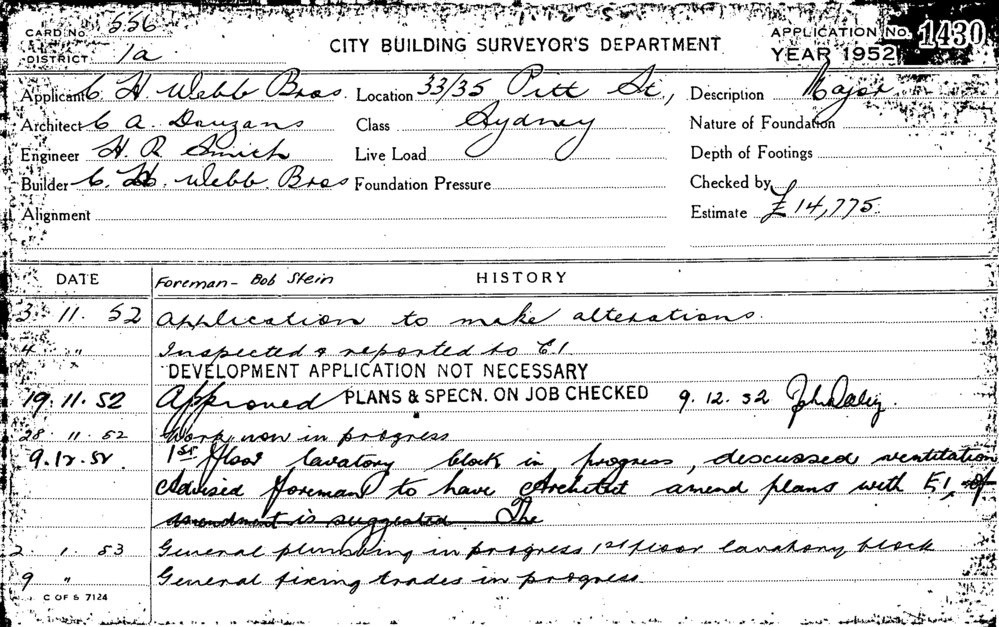 CARD No. 556
DISTRICT 1a
CITY BUILDING SURVEYOR'S DEPARTMENT
APPLICATION No. 1430
YEAR 1952
Applicant C H Webb Bros. Location 33/35 Pitt St, Description Major
Architect C A Class Sydney Nature of Foundation
Engineer H. R Smith Live Load Depth of Footings
Builder C. H. Webb Bros Foundation Pressure Checked by
Alignment Estimate £14,775.
DATE Foreman - Bob Stein HISTORY
3. 11. 52 Application to make alterations.
4 " Inspected & reported to E1.
DEVELOPMENT APPLICATION NOT NECESSARY
19. 11. 52 Approved PLANS & SPECN. ON JOB CHECKED 9. 12. 52 John Daley.
28 11. 52 Work now in progress
9. 12. 52 1st floor lavatory block in progress, discussed ventilation
Advised foreman to have Architect amend plans with E1, of
amendment is suggested. The
2. 1. 53 General plumbing in progress 1st floor lavatory block
9 " General fixing trades in progress.
C OF S 7124